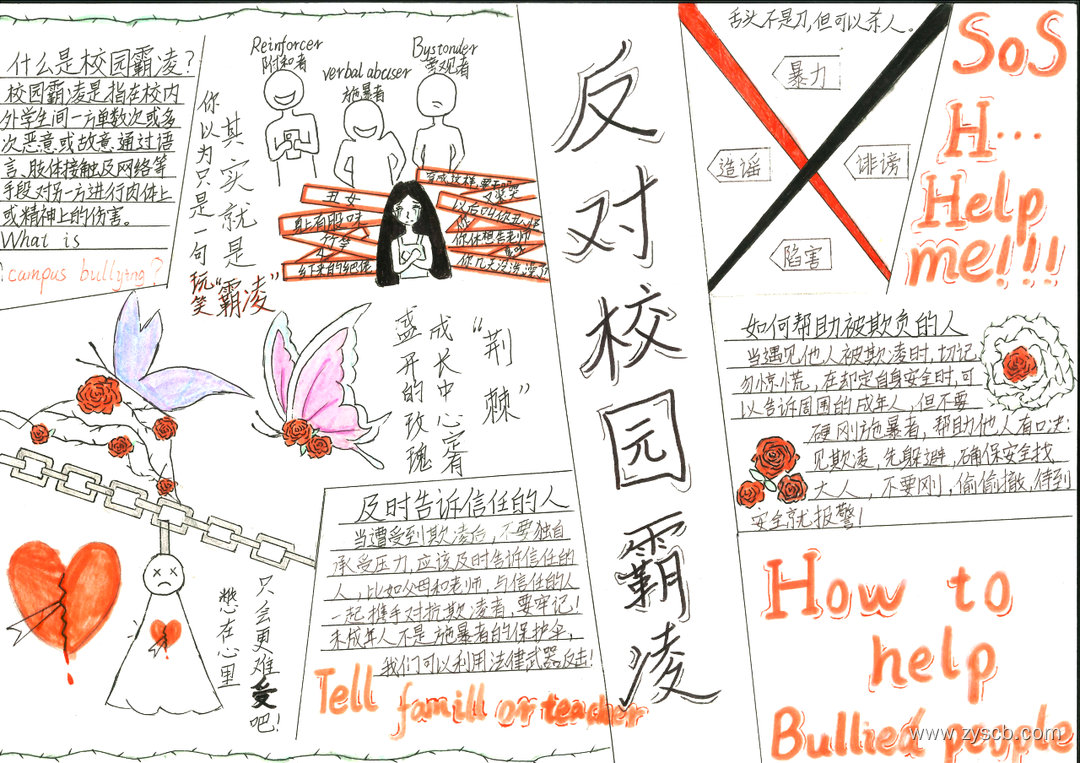 什么是校园霸凌?
校园霸凌是指在校内
外学生间一方单数次或多
次恶意或故意通过语
言、肢体接触及网络等
手段对另一方进行肉体上
或精神上的伤害。
What is
campus bullying?
你以为只是一句玩笑
其实就是“霸凌”
Reinforcer
附和者
verbal abuser
施暴者
Bystonder
旁观者
丑女
身上有股味
竹竿
乡下来的
反对校园霸凌
舌头不是刀,但可以杀人。
暴力
造谣
诽谤
陷害
SoS
H...
Help
me!!!
“荆棘”
成长中心定有
盛开的玫瑰
如何帮助被欺负的人
当遇见他人被欺凌时,切记
勿惊小荒,在却定自身安全时,可
以告诉周围的成年人,但不要
硬刚施暴者,帮助他人有口决:
见欺凌,先躲避,确保安全找
大人,不要刚,偷偷撤,待到
安全就报警!
及时告诉信任的人
当遭受到欺凌后,不要独自
承受压力,应该及时告诉信任的
人,比如父母和老师,与信任的人
一起携手对抗欺凌者,要牢记!
未成年人不是施暴者的保护伞,
我们可以利用法律武器反击!
Tell famill or teacher
憋在心里
只会更难受吧!
How to
help
Bullied people
www.zyscb.com